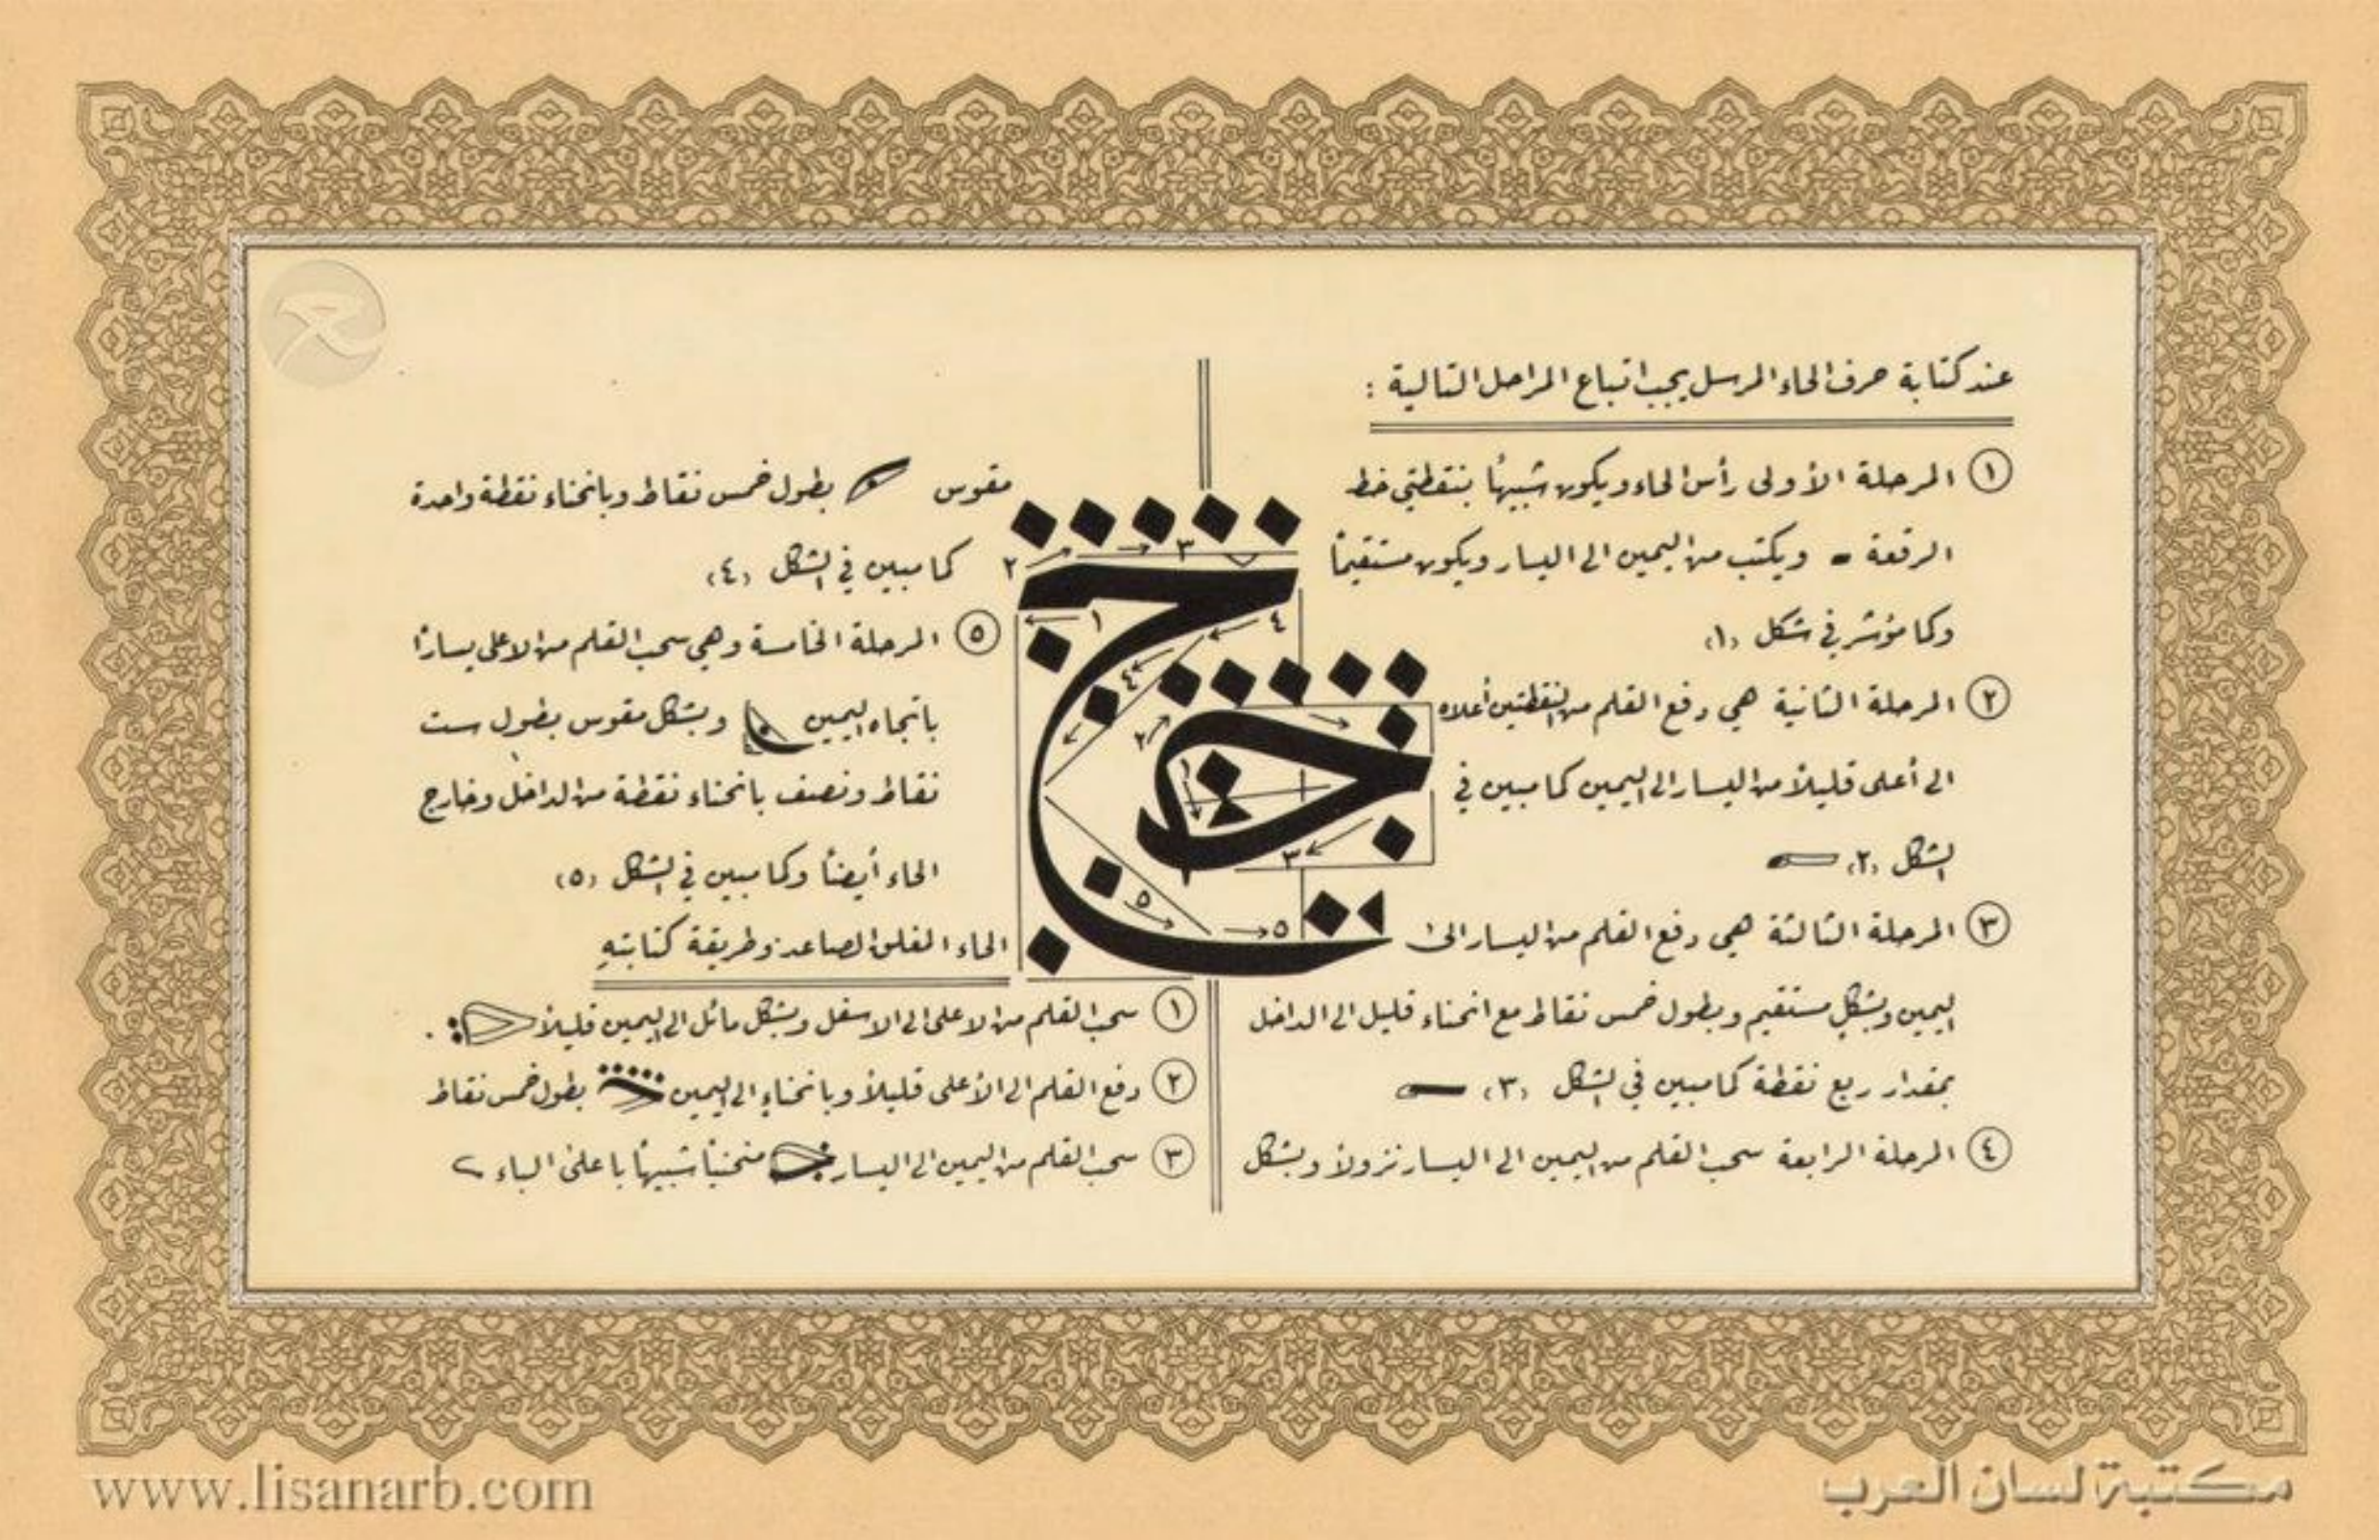 عند كتابة حرف الحاء المرسل يجب اتباع المراحل التالية :
١ المرحلة الأولى رأس الحاء ويكون شبيهًا بنقطتي خط
الرقعة ويكتب من اليمين الى اليسار ويكون مستقيمًا
وكما مؤشر في شكل (١)
٢ المرحلة الثانية هي دفع القلم من النقطتين أعلاه
الى أعلى قليلاً من اليسار الى اليمين كما مبين في
الشكل (٢)
٣ المرحلة الثالثة هي دفع القلم من اليسار الى
اليمين وبشكل مستقيم وبطول خمس نقاط مع انحناء قليل الى الداخل
بمقدار ربع نقطة كما مبين في الشكل (٣)
٤ المرحلة الرابعة سحب القلم من اليمين الى اليسار نزولاً وبشكل
مقوس بطول خمس نقاط وبانحناء نقطة واحدة
كما مبين في الشكل (٤)
٥ المرحلة الخامسة وهي سحب القلم من الاعلى يسارًا
باتجاه اليمين وبشكل مقوس بطول ست
نقاط ونصف بانحناء نقطة من الداخل وخارج
الحاء أيضًا وكما مبين في الشكل (٥)
الحاء المغلق الصاعد وطريقة كتابته
١ سحب القلم من الاعلى الى الاسفل وبشكل مائل الى اليمين قليلاً .
٢ دفع القلم الى الأعلى قليلاً وبانحناءٍ الى اليمين بطول خمس نقاط
٣ سحب القلم من اليمين الى اليسار منحنيًا شبيهًا باعلى الباء
ح
ح
١ ٢ ٣ ٤ ٤ ٥ ٥
١ ٢ ٣
www.lisanarb.com
مكتبة لسان العرب